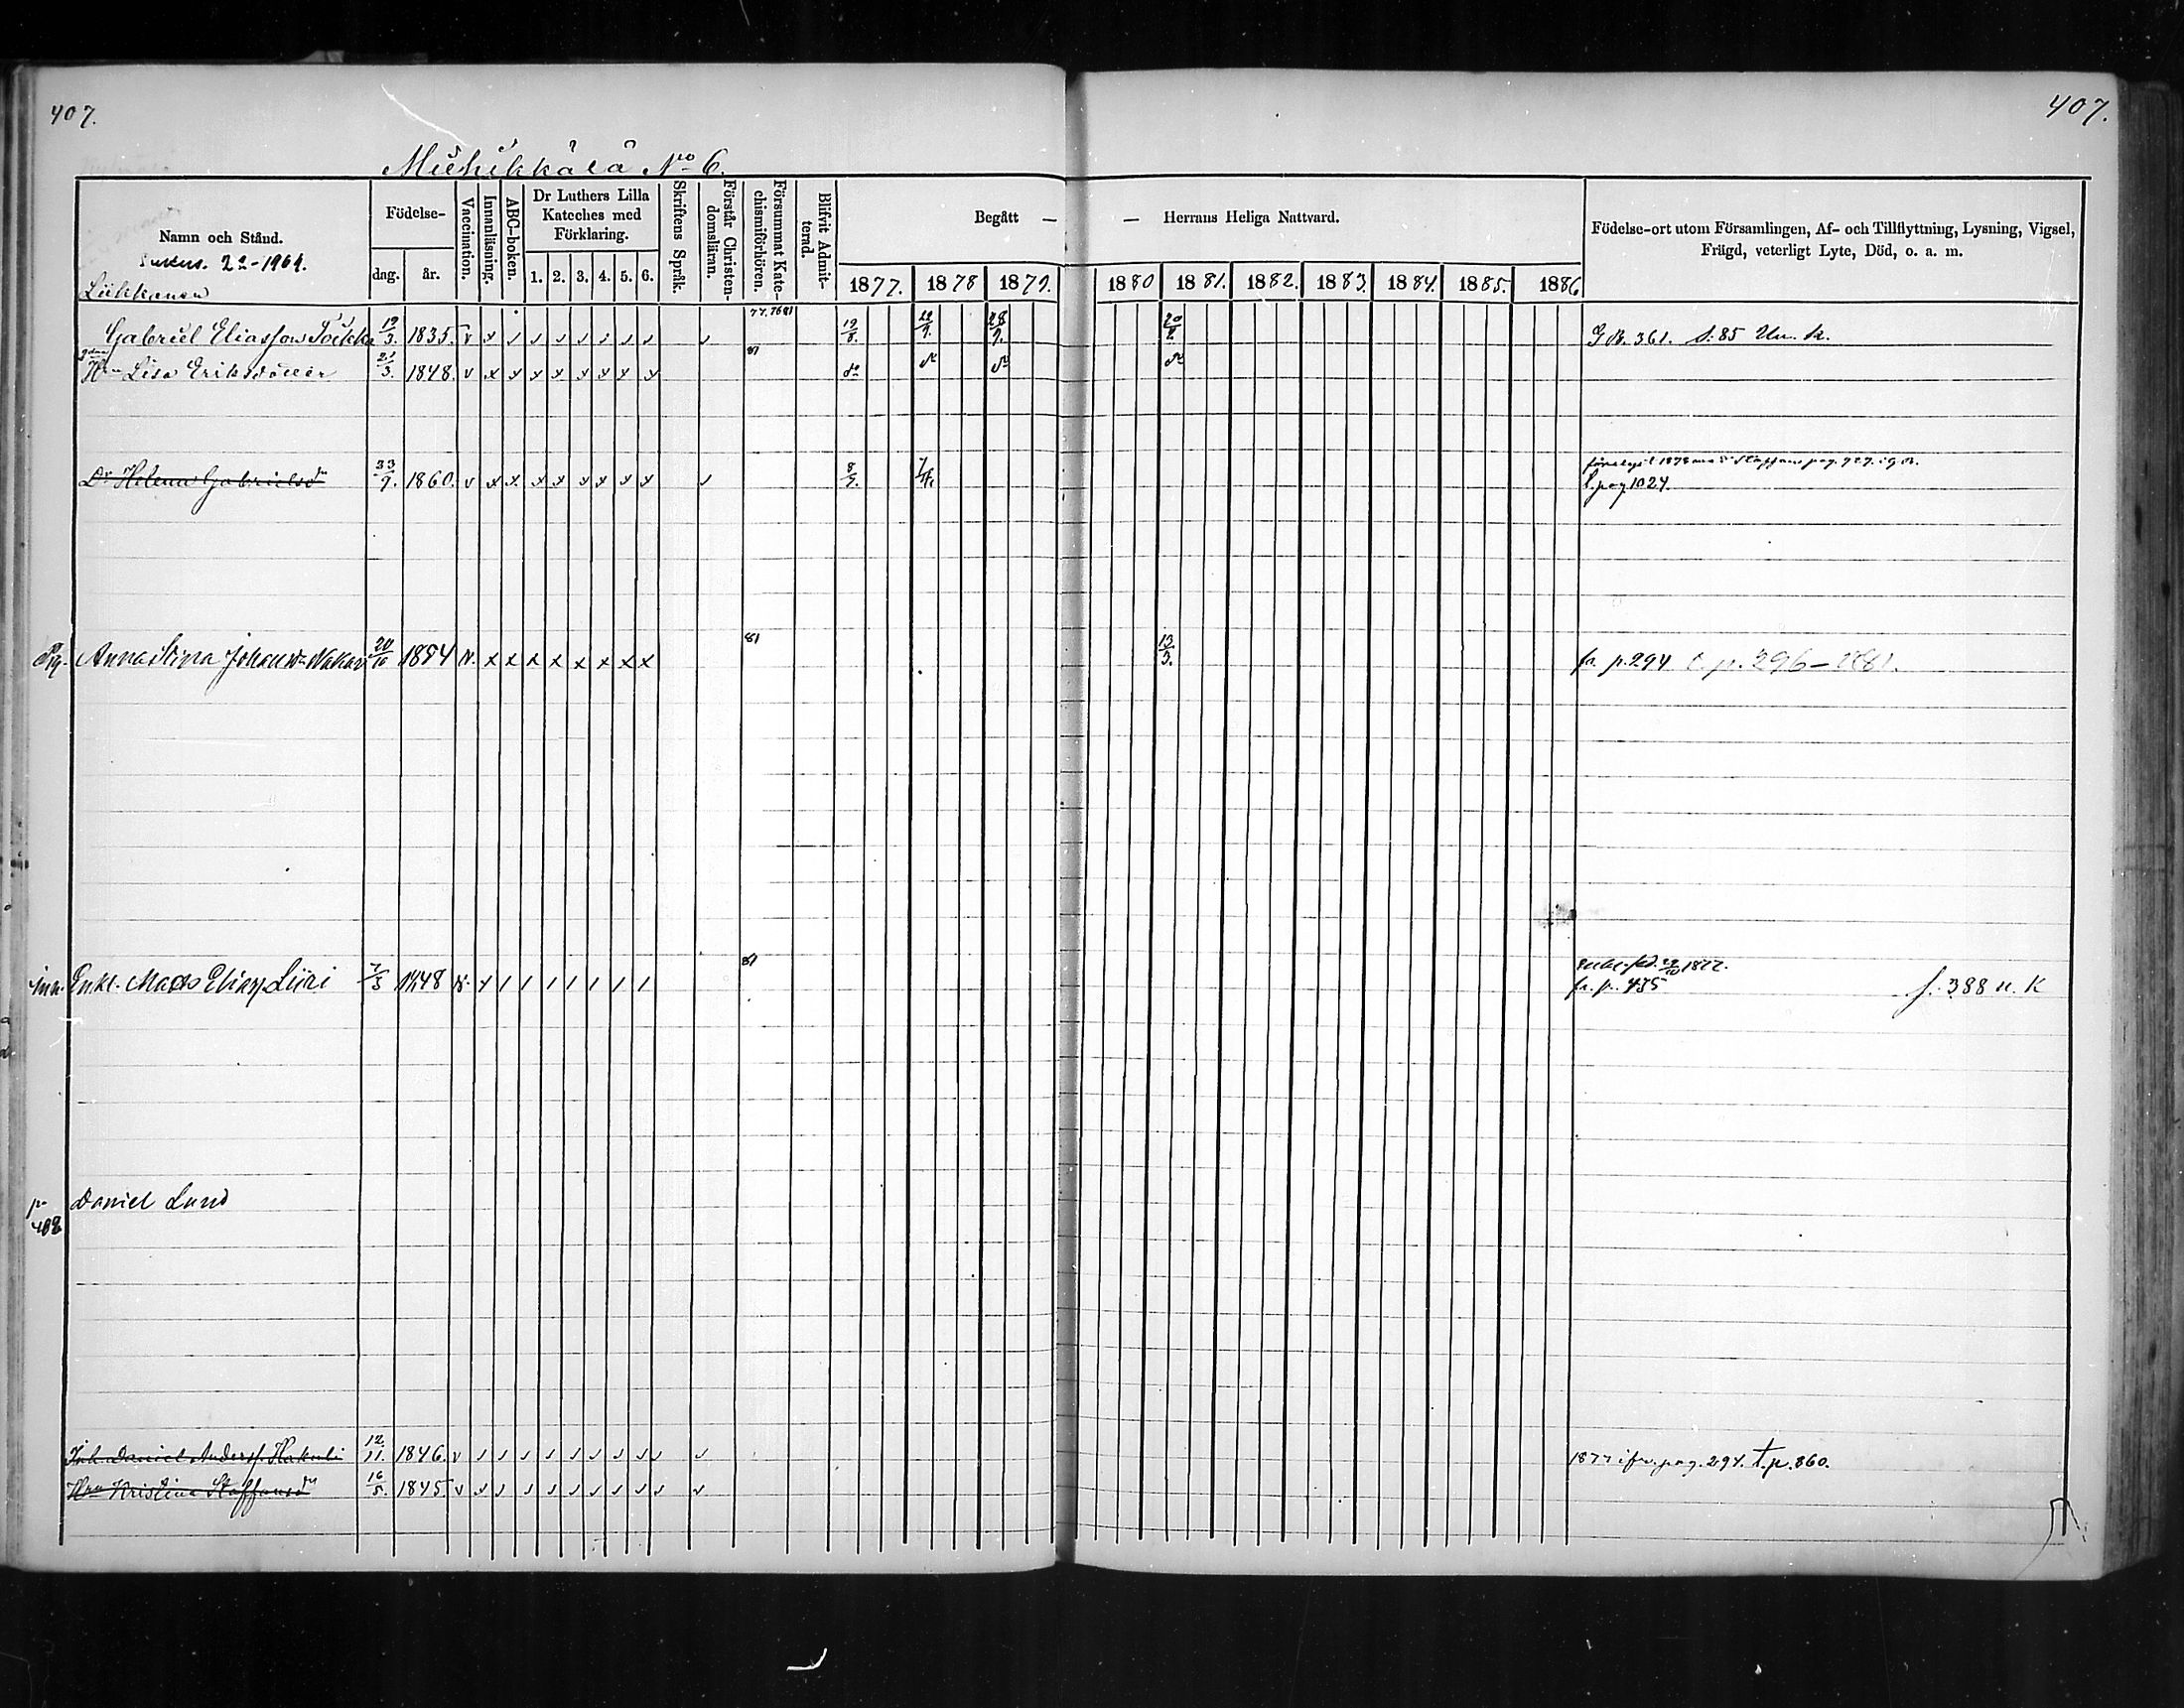 407.
407.
Miehikkälä No 6.
Namn och Stånd.
22-1964.
Födelse-
dag.
år.
Vaccination.
Innanläsning.
ABC-boken.
Dr Luthers Lilla
Kateches med
Förklaring.
1. 2. 3. 4. 5. 6.
Skriftens Språk.
Förstår Christen-
domsläran.
Försummat Kate-
chismiförhören.
Blifvit Admit-
terad.
Begått —
— Herrans Heliga Nattvard.
1877. 1878 1879. 1880 1881. 1882. 1883. 1884. 1885. 1886
Födelse-ort utom Församlingen, Af- och Tillflyttning, Lysning, Vigsel,
Frägd, veterligt Lyte, Död, o. a. m.
Liikkanen
Gabriel Eliasson 19/3. 1835. v 19/8. 28/9. 20/2. G.B. 361. S. 85
Hn Lisa Eriksdotter 21/3. 1848. v x x x x x x x x 81 do do do do
Dr Helena Gabrielsdr 1860. v x x x x x x x x 8/7. pag. 927.
t. pag 1024.
Pig. Anna Stina Johansdr 20/10 1854 v. x x x x x x x x 81 13/3. fr. p. 294 t. p. 296 – 1881.
Inh. Enkl. Matts Eliass. Liiri 7/3 1848 81 1822.
fr. p. 435 f. 388 u. K
p. 408 Daniel Lund
Inh. Daniel Anderss. 12/11. 1846. v 1877 ifr. pag. 294. t. p. 860.
Hrn Kristina Staffansdr 16/5. 1845 v